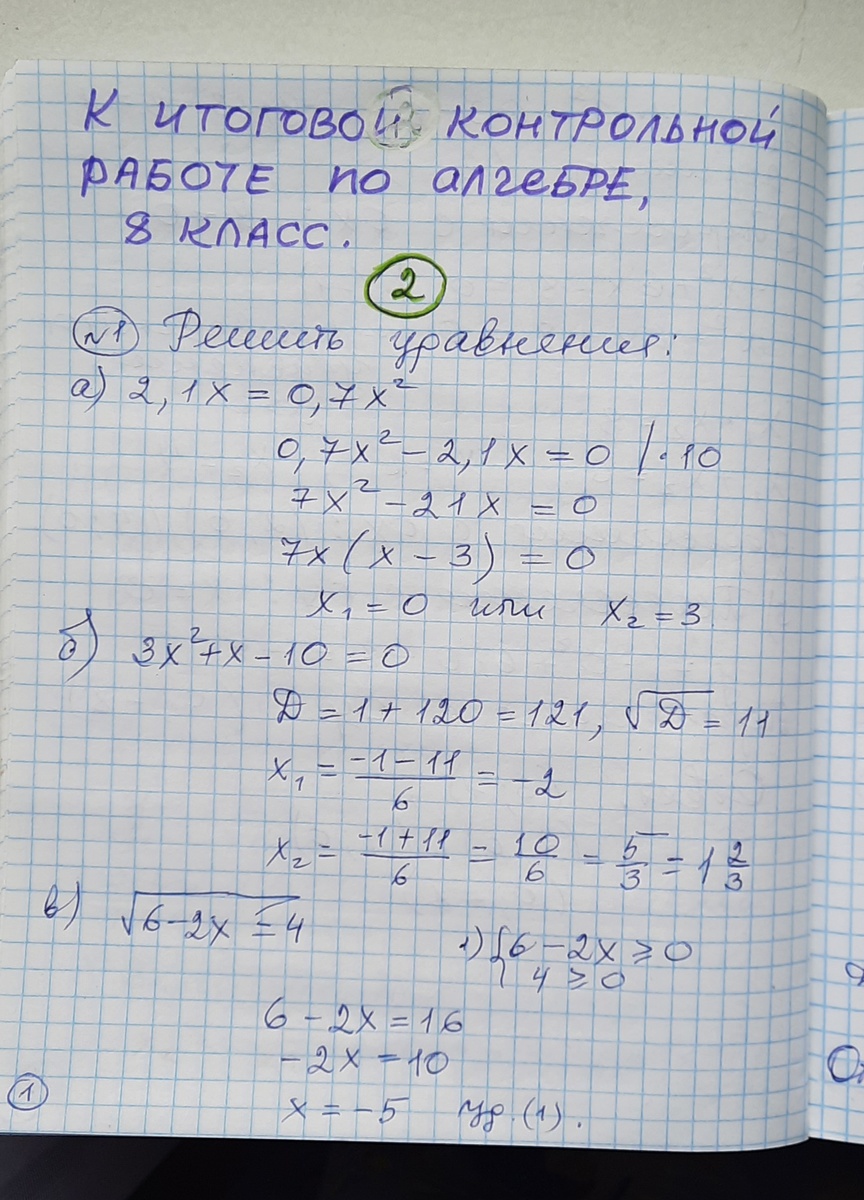 К ИТОГОВОЙ КОНТРОЛЬНОЙ
РАБОТЕ ПО АЛГЕБРЕ,
8 КЛАСС.
2
№1 Решить уравнения:
а) 2,1x = 0,7x²
0,7x² - 2,1x = 0 /·10
7x² - 21x = 0
7x(x - 3) = 0
x₁ = 0 или x₂ = 3
б) 3x² + x - 10 = 0
D = 1 + 120 = 121, √D = 11
x₁ = (-1 - 11)/6 = -2
x₂ = (-1 + 11)/6 = 10/6 = 5/3 = 1 2/3
в) √6 - 2x = 4
1) { 6 - 2x ≥ 0
4 ≥ 0
6 - 2x = 16
-2x = 10
x = -5 уд. (1).
1